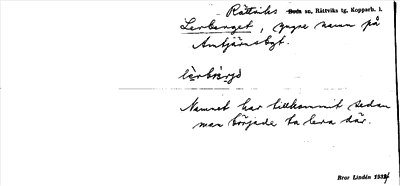 Rättviks Boda sn, Rättviks tg, Kopparb. l.
Lerberget, yngre namn på
Antjärnsbgt.
Namnet har tillkommit sedan
man började ta lera där.
Bror Lindén 1934